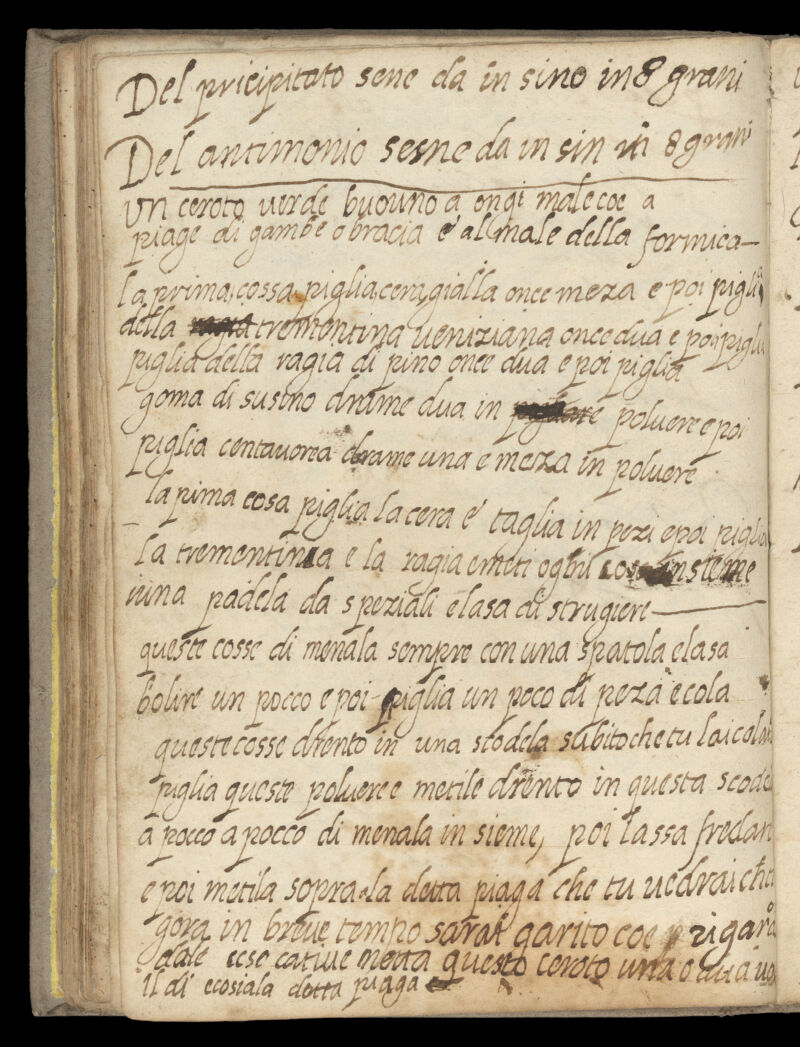 Del pricipitato sene da in sino in 8 grani
Del antimonio sesne da in sin in 8 grani
Un ceroto verde buouno a ongi male coe a
piage di gambe o bracia e' al male della formica
la prima cossa piglia cera gialla once meza e poi piglia
della ragia trementina veniziana once dua e poi piglia
piglia della ragia di pino once dua e poi piglia
goma di susino drame dua in poluere e poi
piglia centauorea drame una e meza in poluere
la pima cosa piglia la cera e' taglia in pezi e poi piglia
la trementina e la ragia e meti ogni cosa insieme
in una padela da speziali e lasa di strugiere
queste cosse di menala sempre con una spatola e lasa
bolire un pocco e poi piglia un poco di peza e cola
queste cosse drento in una scodela subito che tu lai colata
piglia queste poluere e metile drento in questa scodela
a pocco a pocco di menala in sieme, poi lassa fredare
e poi metila sopra la detta piaga che tu vedrai che
in breve tempo sarai garito coe
cative metta questo ceroto una o dua
il di ecosiala detta piaga